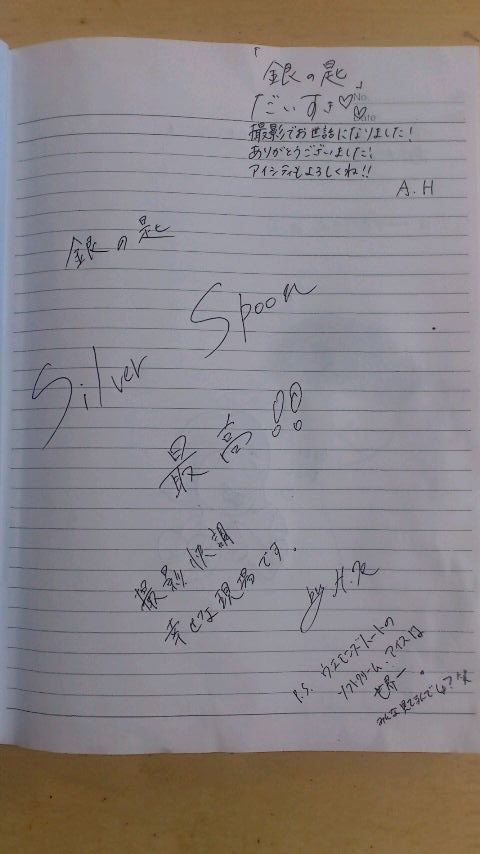 「銀の匙」
だいすき♡♡
No.
Date
撮影でお世話になりました!
ありがとうございました!
アイシテイもよろしくね!!
A.H
銀の匙
Silver Spoon
最高!!
撮影快調
幸せな現場です。
by H.K
P.S. ウエモンズハートの
ソフトクリーム、アイスは
世界一。